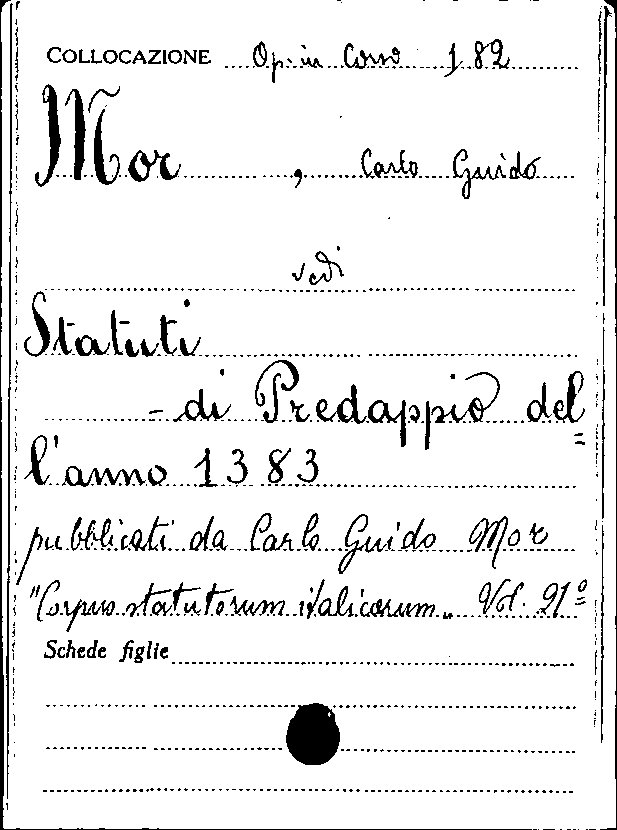 COLLOCAZIONE Op. in Corso 182
Mor, Carlo Guido
vedi
Statuti
- di Predappio del=
l'anno 1383
pubblicati da Carlo Guido Mor
"Corpus statutorum italicorum„ Vol. 21º
Schede figlie